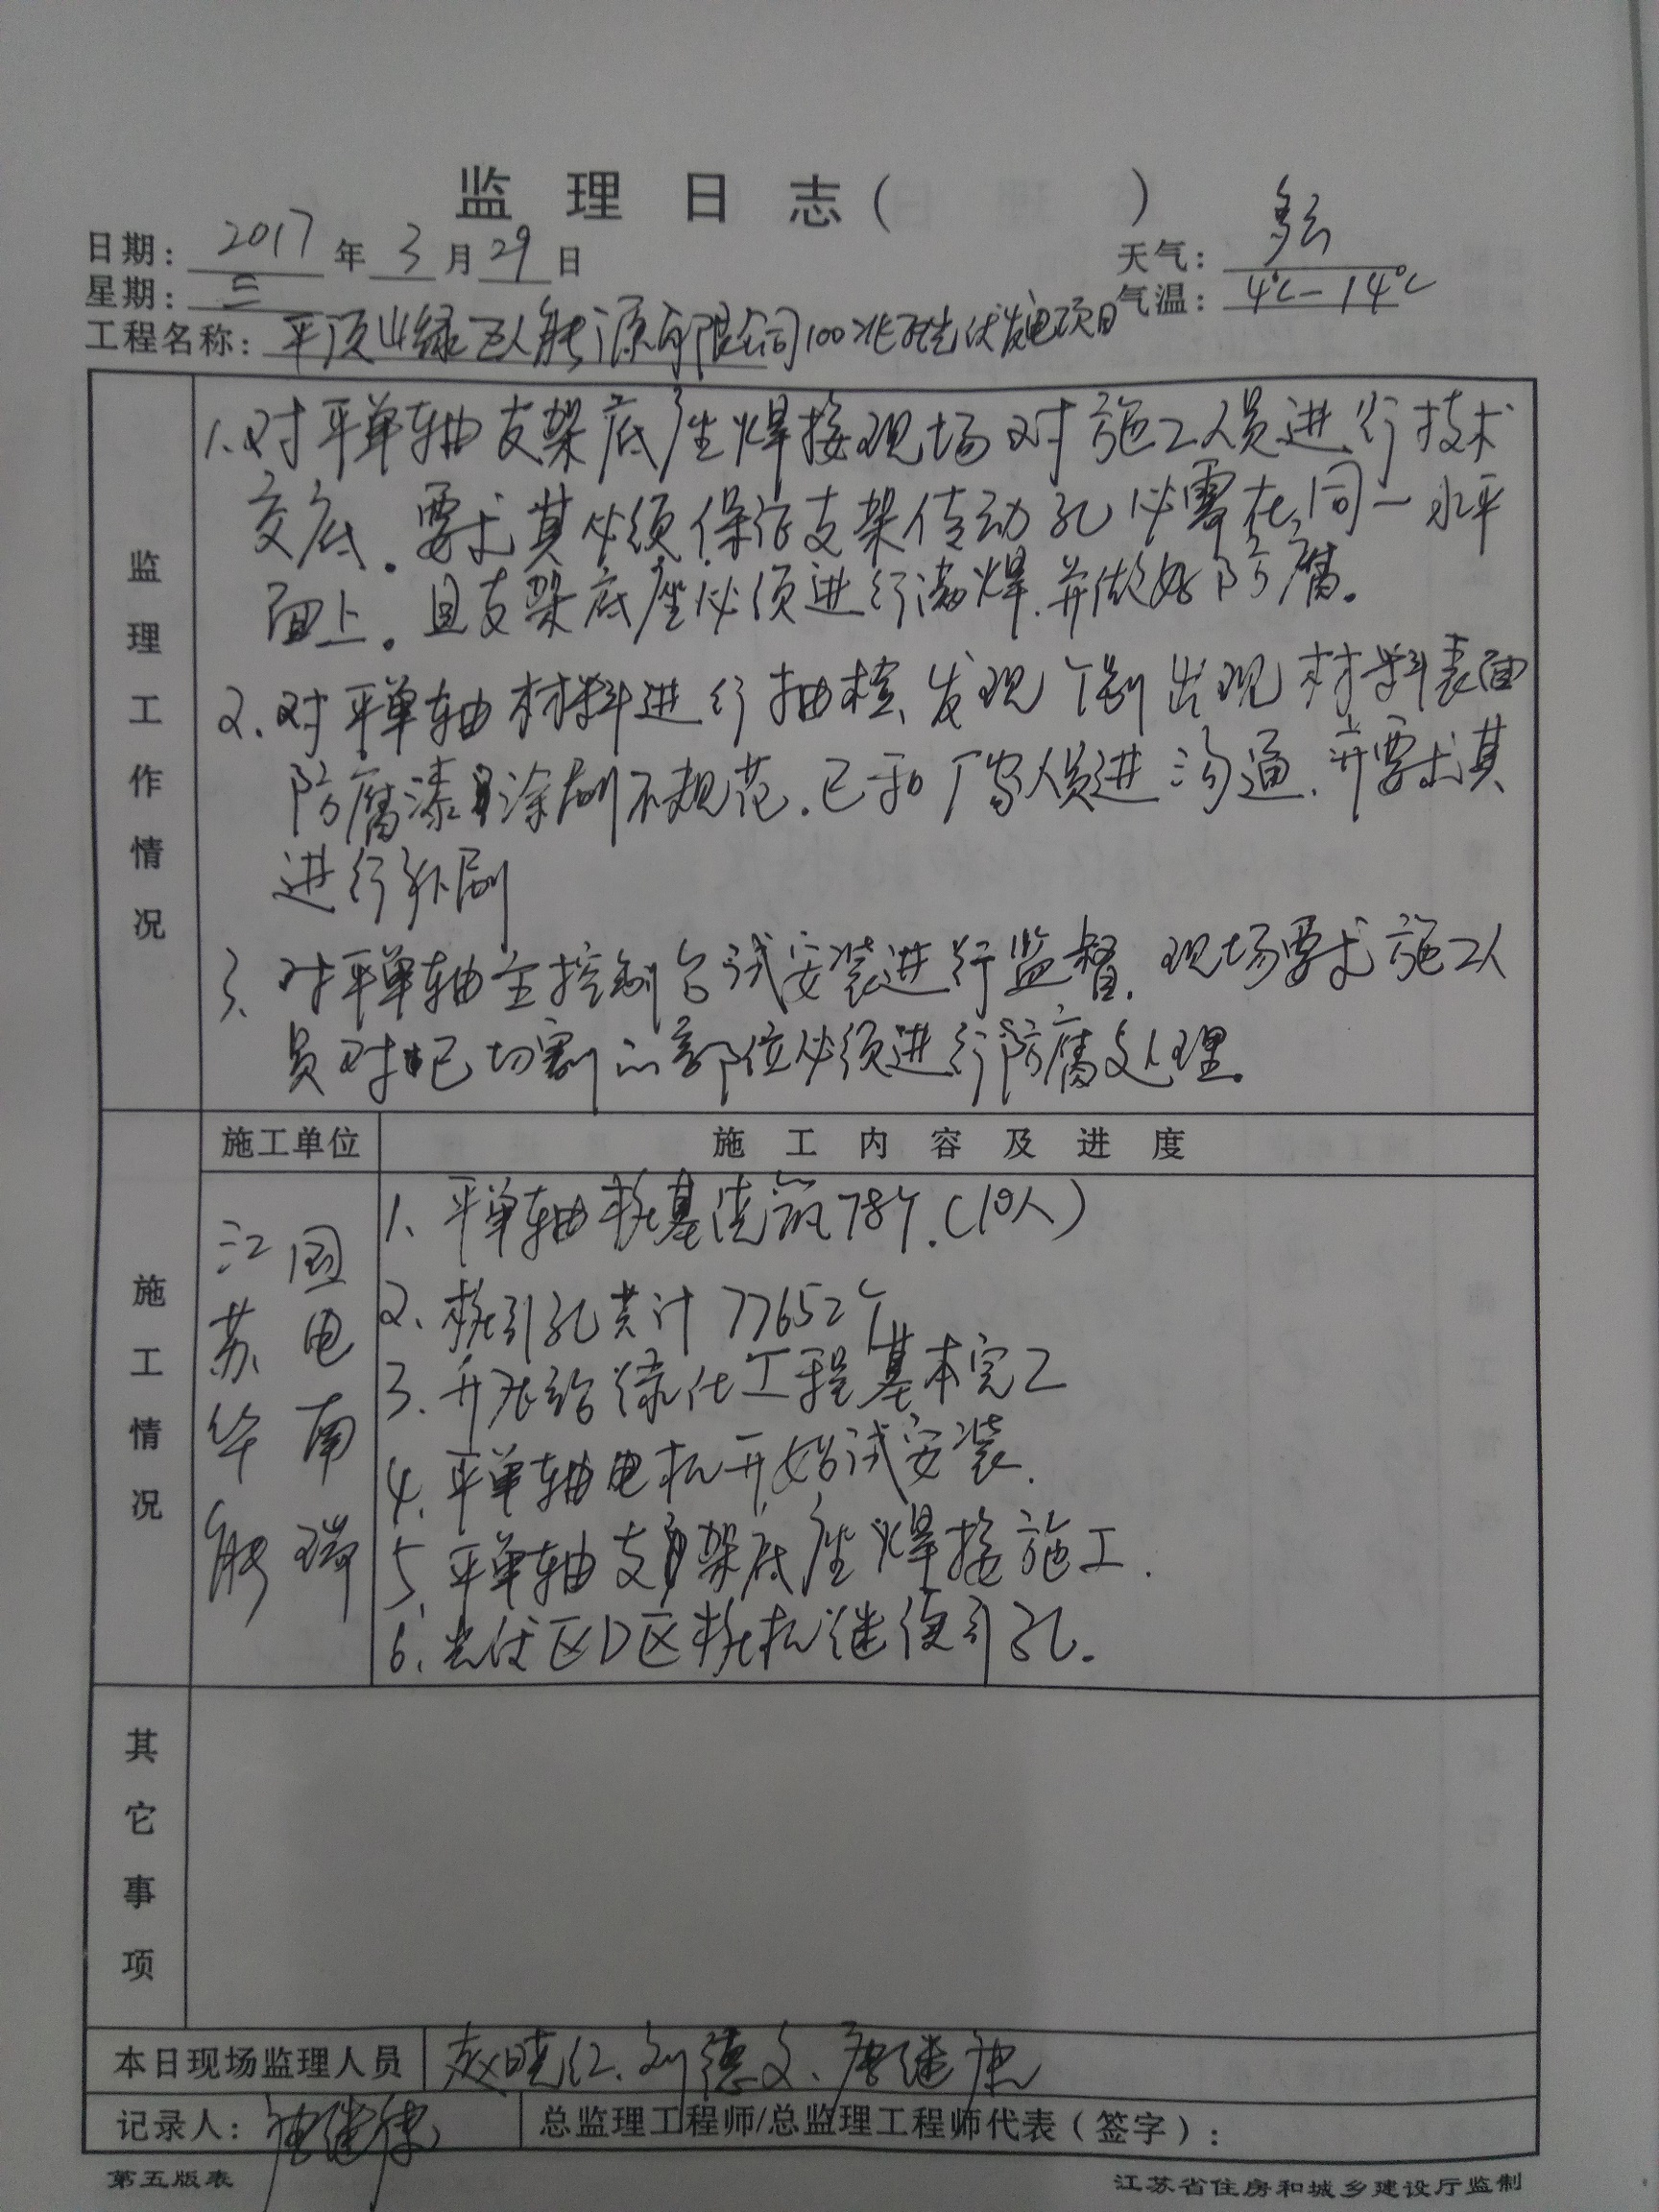 监理日志（ ）
日期：2017年3月29日
天气：多云
星期：三
气温：4℃-14℃
工程名称：平顶山绿巨人能源有限公司100兆瓦光伏发电项目
监理工作情况
1.对平单轴支架底座焊接现场对施工人员进行技术
交底。要求其必须保证支架传动孔必需在同一水平
面上。且支架底座必须进行满焊.并做好防腐。
2、对平单轴材料进行抽检、发现个别出现材料表面
防腐漆涂刷不规范.已和厂家人员进沟通.并要求其
进行补刷
3、对平单轴主控制台试安装进行监督.现场要求施工人
员对已切割的部位必须进行防腐处理。
施工情况
施工单位
施工内容及进度
江苏华能
国电南瑞
1、平单轴桩基浇筑78个.(10人)
2、桩引孔共计77652个
3、升压站绿化工程基本完工
4、平单轴电机开始试安装.
5、平单轴支架底座焊接施工.
6、光伏区D区桩机继续引孔.
其它事项
本日现场监理人员
赵晓仁、刘德文、唐继康
记录人：唐继康
总监理工程师/总监理工程师代表（签字）：
第五版表
江苏省住房和城乡建设厅监制